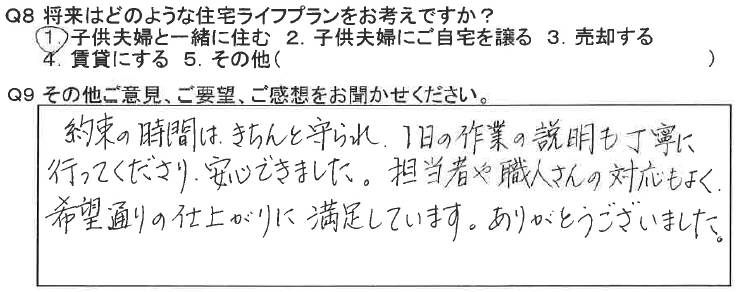 Q8 将来はどのような住宅ライフプランをお考えですか？
1. 子供夫婦と一緒に住む 2. 子供夫婦にご自宅を譲る 3. 売却する
4. 賃貸にする 5. その他( )
Q9 その他ご意見、ご要望、ご感想をお聞かせください。
約束の時間は、きちんと守られ、1日の作業の説明も丁寧に
行ってくださり、安心できました。担当者や職人さんの対応もよく、
希望通りの仕上がりに満足しています。ありがとうございました。